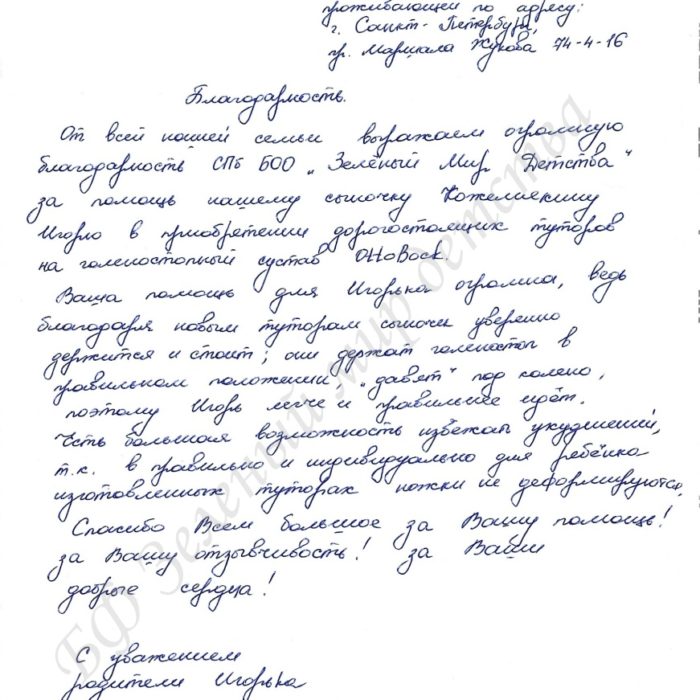 проживающей по адресу:
г. Санкт-Петербург,
пр. Маршала Жукова 74-4-16
Благодарность.
От всей нашей семьи выражаем огромную
благодарность СПб БОО „Зелёный Мир Детства"
за помощь нашему сыночку Кожемякину
Игорю в приобретении дорогостоящих туторов
на голеностопный сустав OttoBock.
Ваша помощь для Игорька огромна, ведь
благодаря новым туторам сыночек уверенно
держится и стоит; они держат голеностоп в
правильном положении, „давят" под колено,
поэтому Игорь легче и правильнее идёт.
Есть большая возможность избежать ухудшений,
т.к. в правильно и индивидуально для ребёнка
изготовленных туторах ножки не деформируются.
Спасибо Всем большое за Вашу помощь!
за Вашу отзывчивость! за Ваши
добрые сердца!
С уважением
родители Игорька
БФ Зеленый мир детства